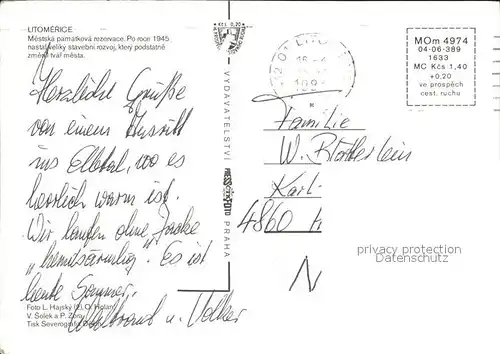 LITOMĚŘICE
Městská památková rezervace. Po roce 1945
nastal veliký stavební rozvoj, který podstatně
změnil tvář města.
Herzliche Grüße
von einem
ins Elbetal, wo es
herrlich warm ist.
Wir laufen ohne Jacke
"hemdsärmlig". Es ist
heute Sommer.
u. Volker
Foto L. Hajský (2), O. Holan,
V. Šolek a P. Zora
Tisk Severografia
Kčs 0,20
VYDAVATELSTVÍ
PRESSFOTO
PRAHA
MOm 4974
04-06-389
1633
MC Kčs 1,40
+0,20
ve prospěch
cest. ruchu
Familie
W.
Karl-
4860
N
privacy protection
Datenschutz